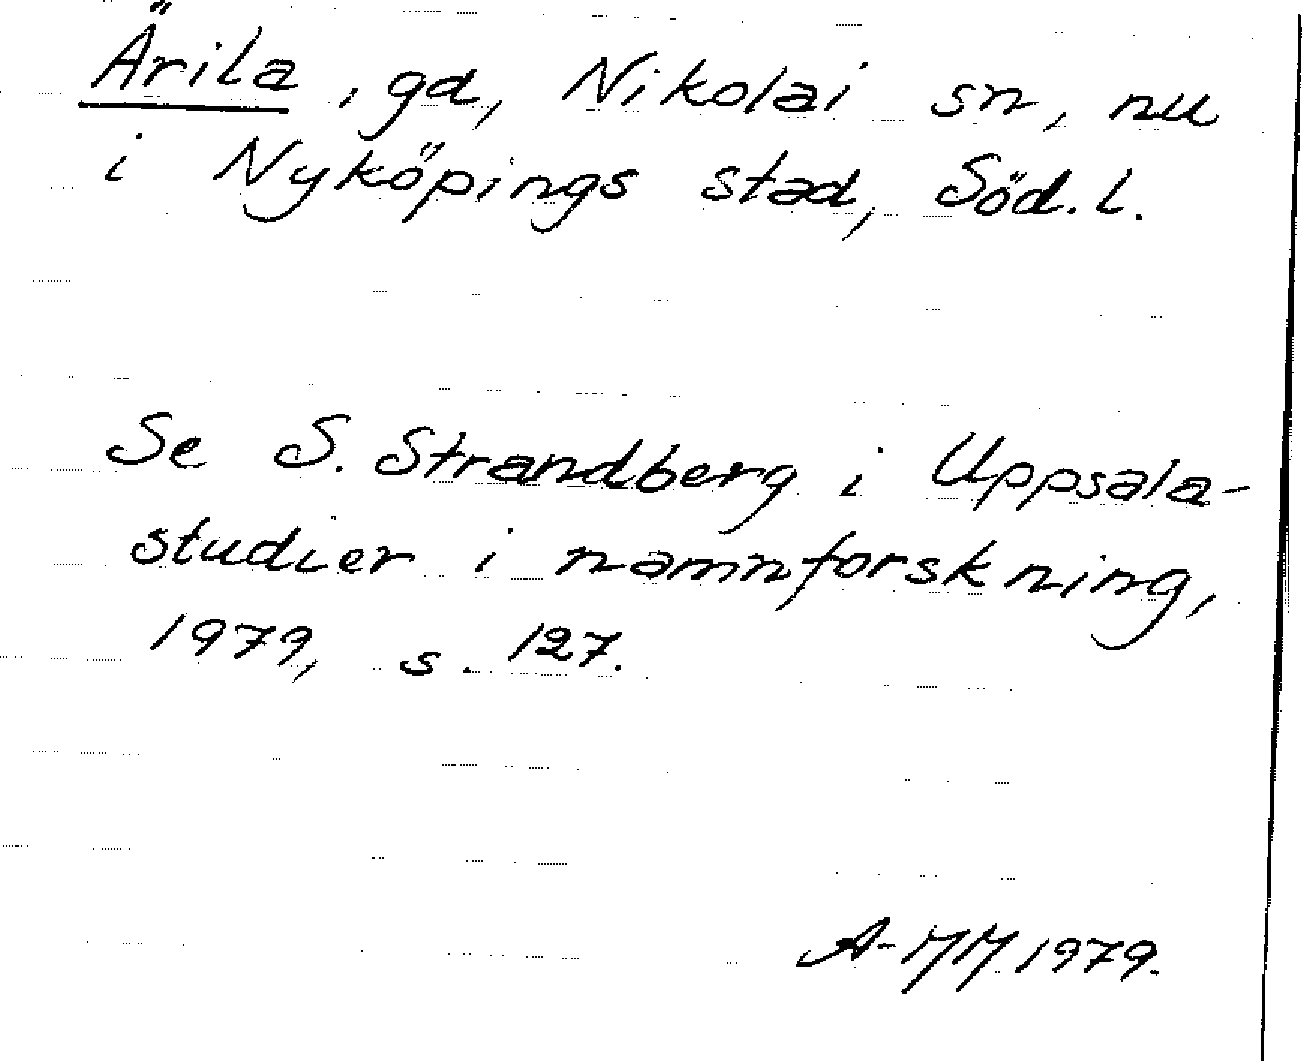 Ärila, gd, Nikolai sn, nu
i Nyköpings stad, Söd.l.
Se S. Strandberg i Uppsala-
studier i namnforskning,
1979, s. 127.
A-MM. 1979.